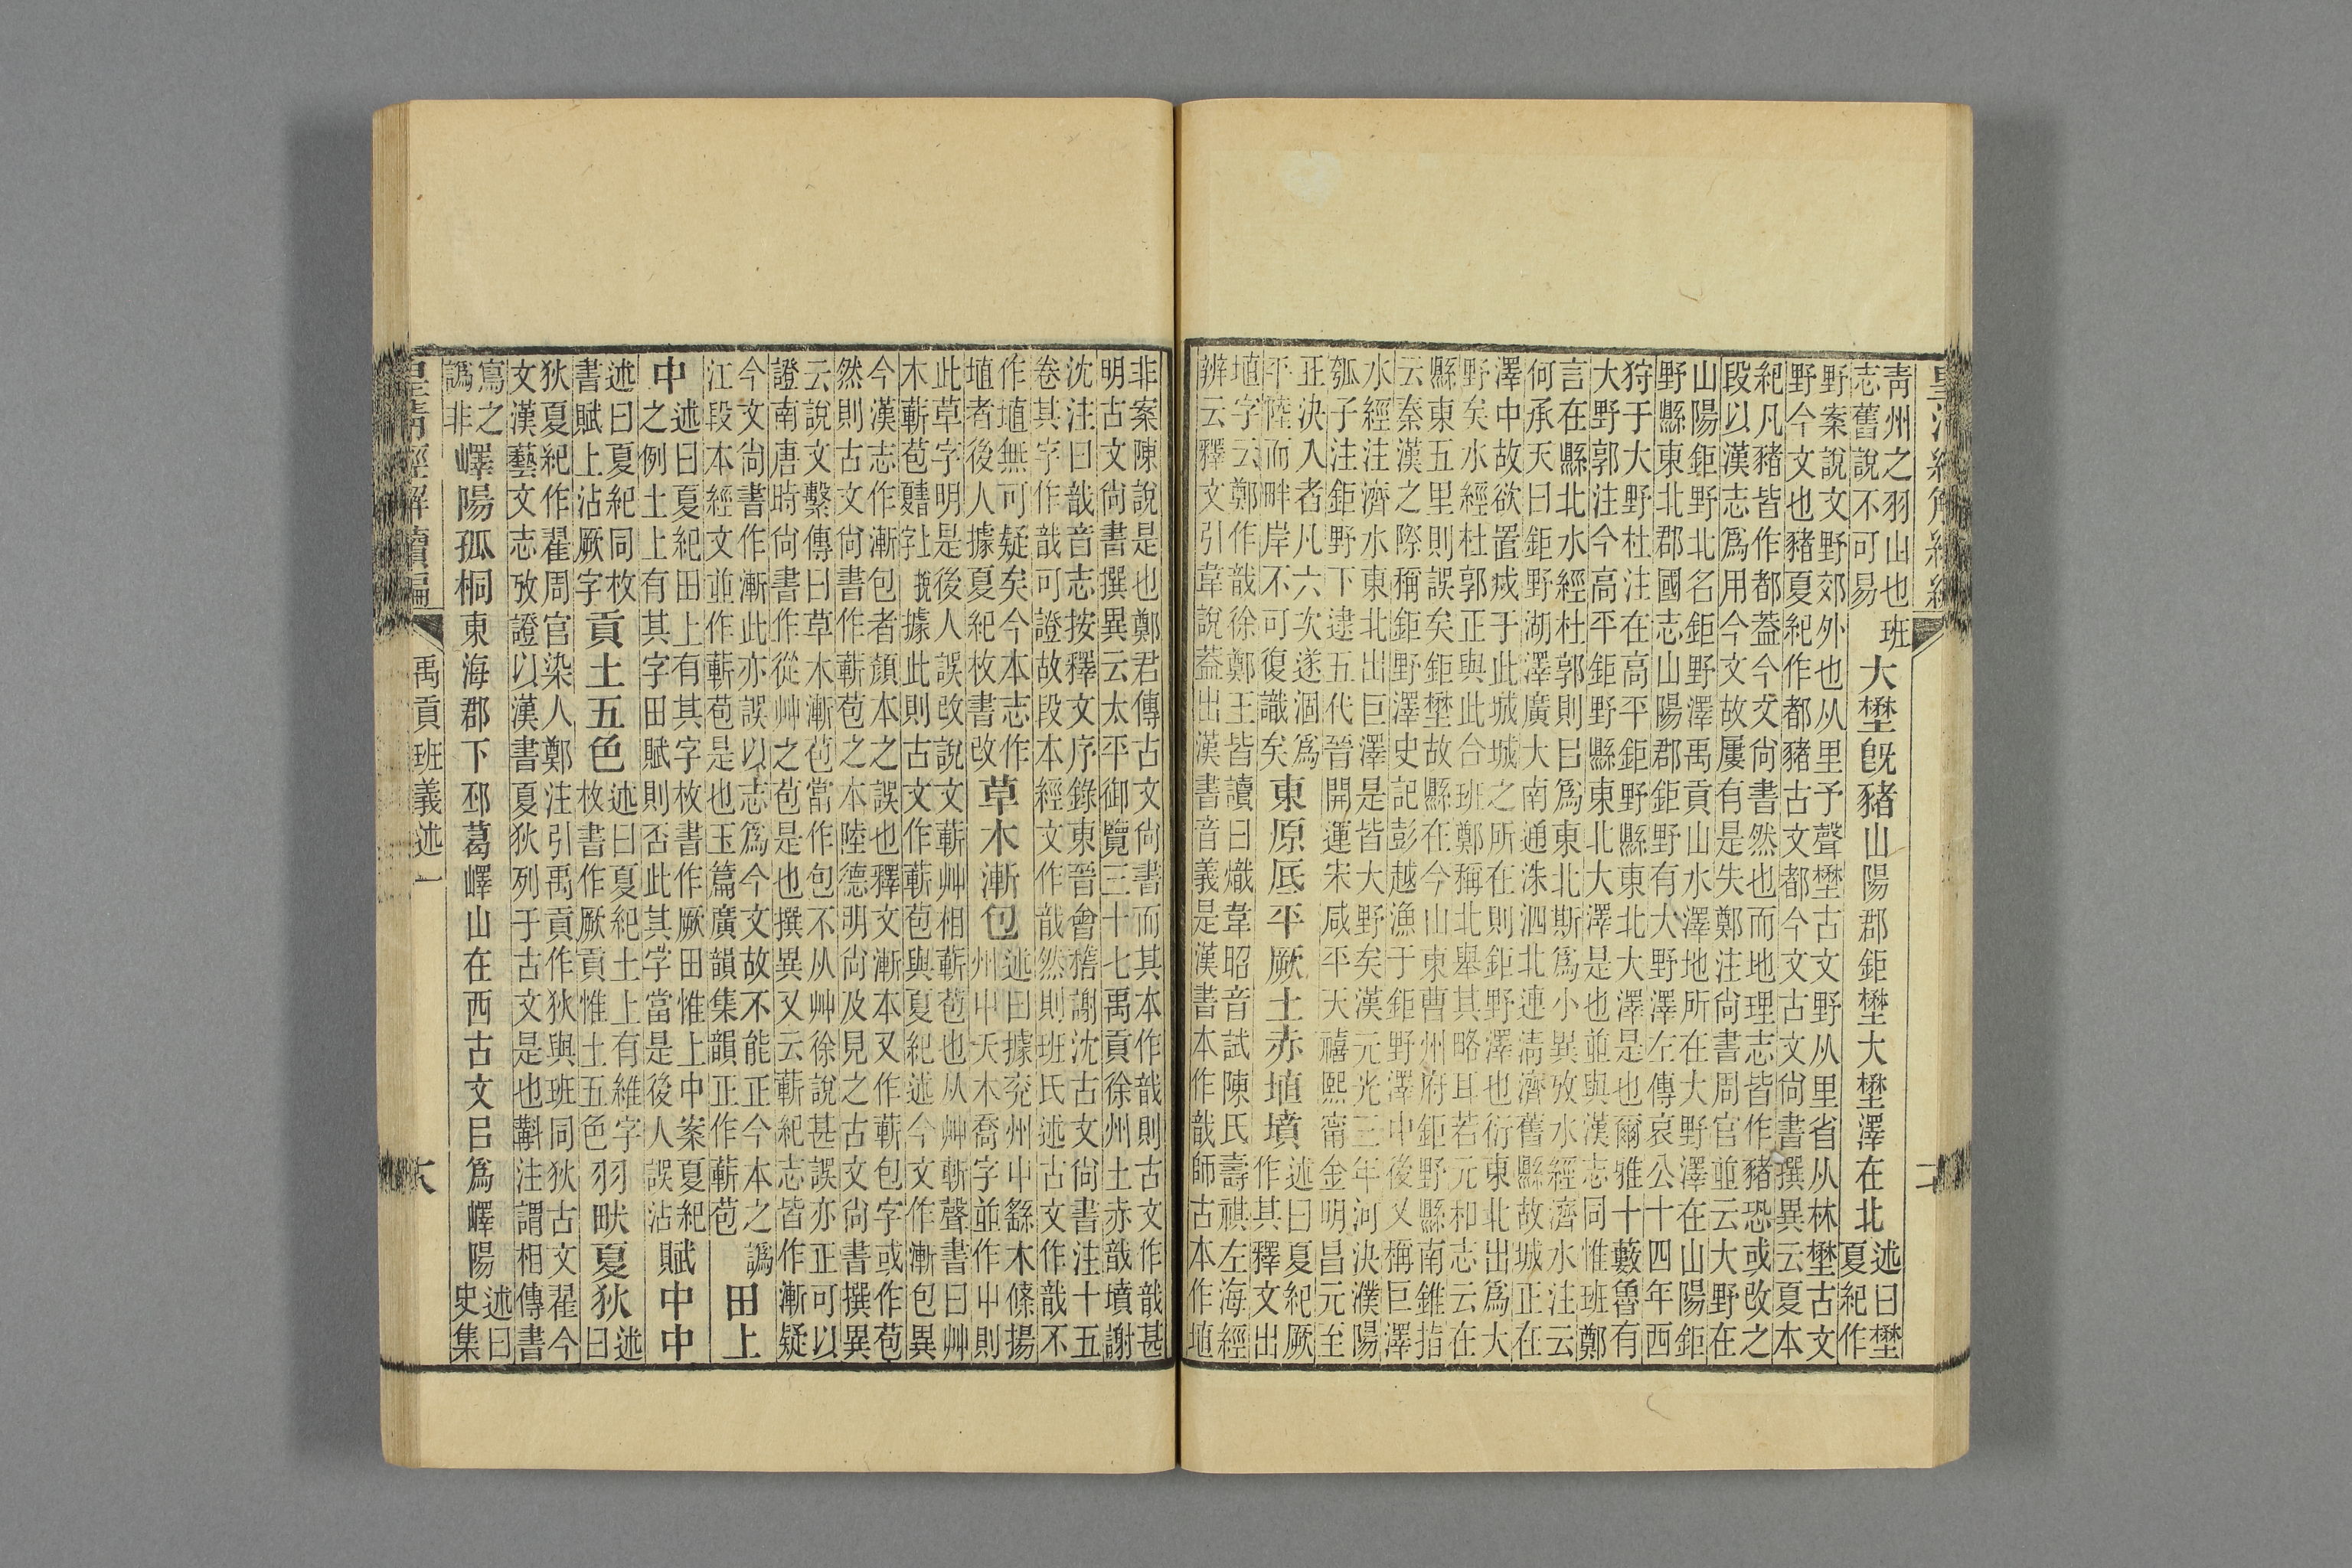 青州之羽山也班
志舊說不可易
大壄旣豬山陽郡鉅壄大壄澤在北
述曰壄
夏紀作
野案說文野郊外也从里予聲壄古文野从里省从林壄古文
野今文也豬夏紀作都豬古文都今文古文尚書撰異云夏本
紀凡豬皆作都蓋今文尚書然也而地理志皆作豬恐或改之
段以漢志爲用今文故屢有是失鄭注尚書周官並云大野在
山陽鉅野北名鉅野澤禹貢山水澤地所在大野澤在山陽鉅
野縣東北郡國志山陽郡鉅野有大野澤左傳哀公十四年西
狩于大野杜注在高平鉅野縣東北大澤是也爾雅十藪魯有
大野郭注今高平鉅野縣東北大澤是也並與漢志同惟班鄭
言在縣北水經杜郭則㠯爲東北斯爲小異攷水經濟水注云
何承天曰鉅野湖澤廣大南通洙泗北連清濟舊縣故城正在
澤中故欲置戍于此城城之所在則鉅野澤也衍東北出爲大
野矣水經杜郭正與此合班鄭稱北舉其略耳若元和志云在
縣東五里則誤矣鉅壄故縣在今山東曹州府鉅野縣南錐指
云秦漢之際稱鉅野澤史記彭越漁于鉅野澤中後又稱巨澤
水經注濟水東北出巨澤是皆大野矣漢元光三年河決濮陽
瓠子注鉅野下逮五代晉開運宋咸平天禧熙甯金明昌元至
正決入者凡六次遂涸爲
平陸而畔岸不可復識矣
東原厎平厥土赤埴墳
述曰夏紀厥
作其釋文出
埴字云鄭作戠徐鄭王皆讀曰熾韋昭音試陳氏壽祺左海經
辨云釋文引韋說蓋出漢書音義是漢書本作戠師古本作埴
非案陳說是也鄭君傳古文尚書而其本作戠則古文作戠甚
明古文尚書撰異云太平御覽三十七禹貢徐州土赤戠墳謝
沈注曰戠音志按釋文序錄東晉會稽謝沈古文尚書注十五
卷其字作戠可證故段本經文作戠然則班氏述古文作戠不
作埴無可疑矣今本志作
埴者後人據夏紀枚書改
草木漸包
述曰據兖州屮繇木條揚
州屮夭木喬字並作屮則
此草字明是後人誤改說文蔪艸相蔪苞也从艸斬聲書曰艸
木蔪苞據此則古文作蔪苞與夏紀述今文作漸包異
今漢志作漸包者顏本之誤也釋文漸本又作蔪包字或作苞
然則古文尚書作蔪苞之本陸德明尚及見之古文尚書撰異
云說文繫傳曰草木漸苞當作包不从艸徐說甚誤亦正可以
證南唐時尚書作從艸之苞是也撰異又云蔪紀志皆作漸疑
今文尚書作漸此亦誤以志爲今文故不能正今本之譌
江段本經文並作蔪苞是也玉篇廣韻集韻正作蔪苞
田上
中
述曰夏紀田上有其字枚書作厥田惟上中案夏紀
之例土上有其字田賦則否此其字當是後人誤沾
賦中中
述曰夏紀同枚
書賦上沾厥字
貢土五色
述曰夏紀土上有維字
枚書作厥貢惟土五色
羽畎夏狄
述
曰
狄夏紀作翟周官染人鄭注引禹貢作狄與班同狄古文翟今
文漢藝文志攷證以漢書夏狄列于古文是也斠注謂相傳書
寫之
譌非
嶧陽孤桐東海郡下邳葛嶧山在西古文㠯爲嶧陽
述曰
史集
皇清經解續編
禹貢班義述一
六